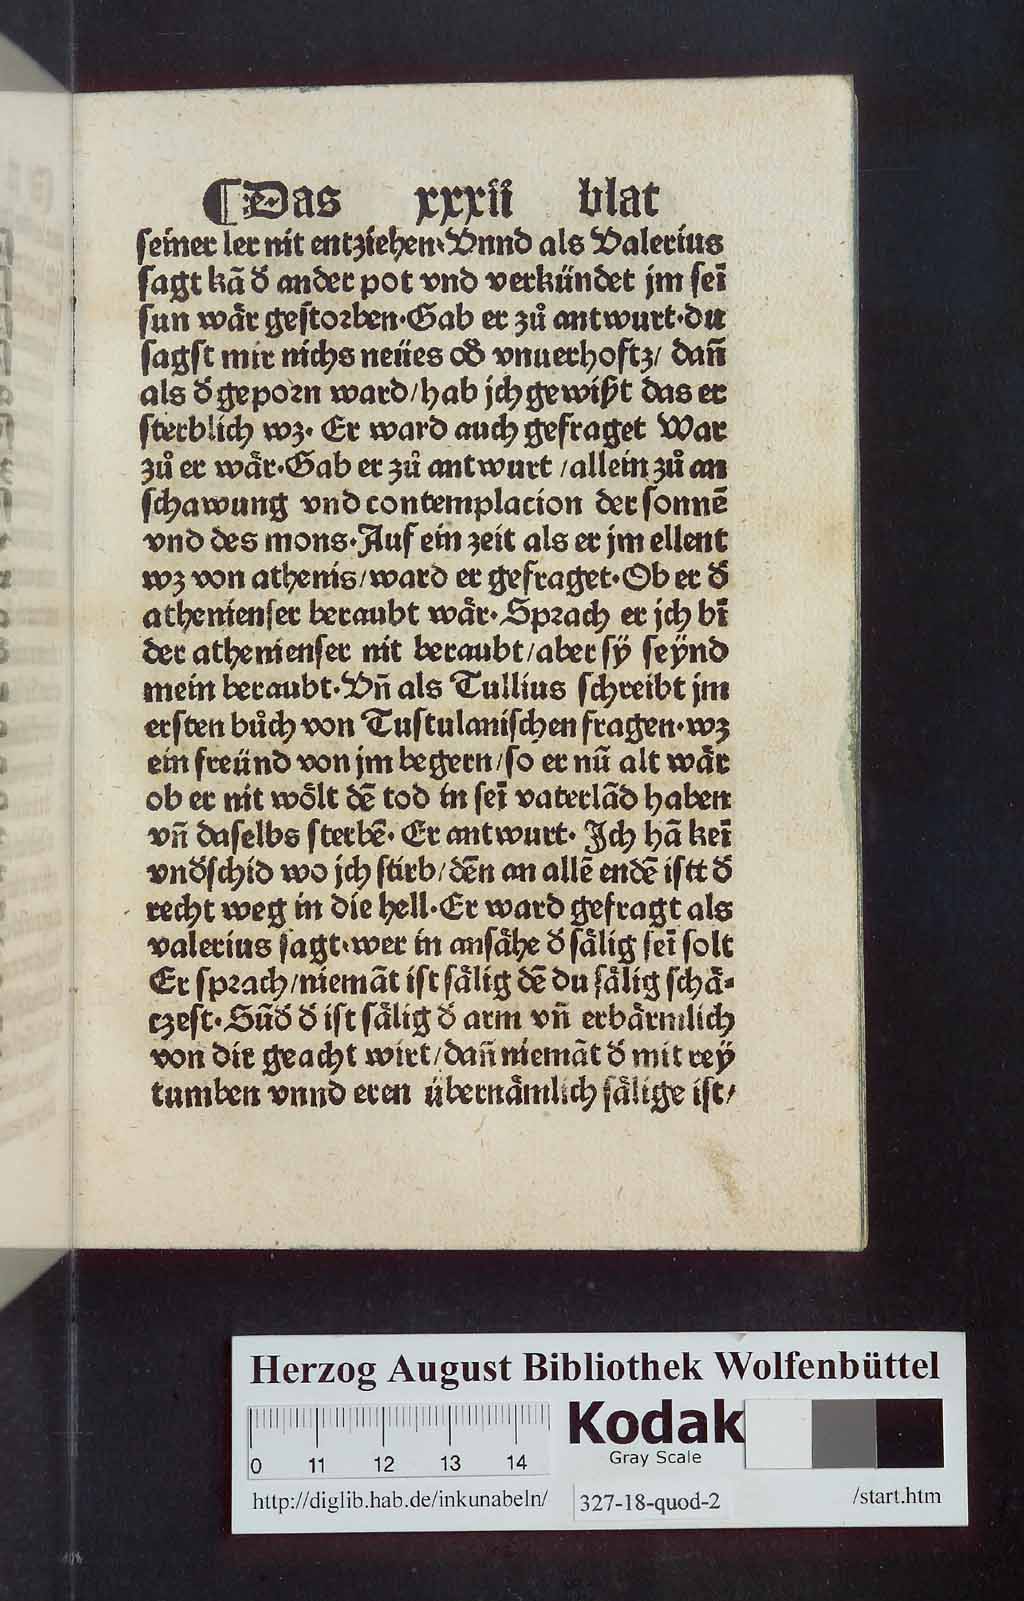 ¶Das xxxii blat
seiner ler nit entziehen·Vnnd als Valerius
sagt kā ď ander pot vnd verkündet jm seī
sun wår gestorben·Gab er zů antwurt·du
sagst mir nichs neües oď vnuerhoftz/ dañ
als ď geporn ward/hab jch gewißt das er
sterblich wz· Er ward auch gefraget War
zů er wår·Gab er zů antwurt /allein zů an
schawung vnd contemplacion der sonnē
vnd des mons·Auf ein zeit als er jm ellent
wz von athenis/ward er gefraget·Ob er ď
athenienser beraubt wår·Sprach er jch bī
der athenienser nit beraubt/aber sÿ seÿnd
mein beraubt·Vñ als Tullius schreibt jm
ersten bůch von Tustulanischen fragen·wz
ein freünd von jm begern/so er nū alt wår
ob er nit wôlt dē tod in seī vaterlād haben
vñ daselbs sterbē· Er antwurt· Jch hā keī
vnďschid wo jch stirb/dēn an allē endē istt ď
recht weg in die hell·Er ward gefragt als
valerius sagt·wer in ansåhe ď sålig seī solt
Er sprach/niemāt ist sålig dē du sålig schå-
czest·Sūď ď ist sålig ď arm vñ erbårmlich
von dir geacht wirt/dañ niemāt ď mit reÿ
tumben vnnd eren übernåmlich sålige ist/
Herzog August Bibliothek Wolfenbüttel
0 11 12 13 14
Kodak
Gray Scale
http://diglib.hab.de/inkunabeln/ 327-18-quod-2 /start.htm